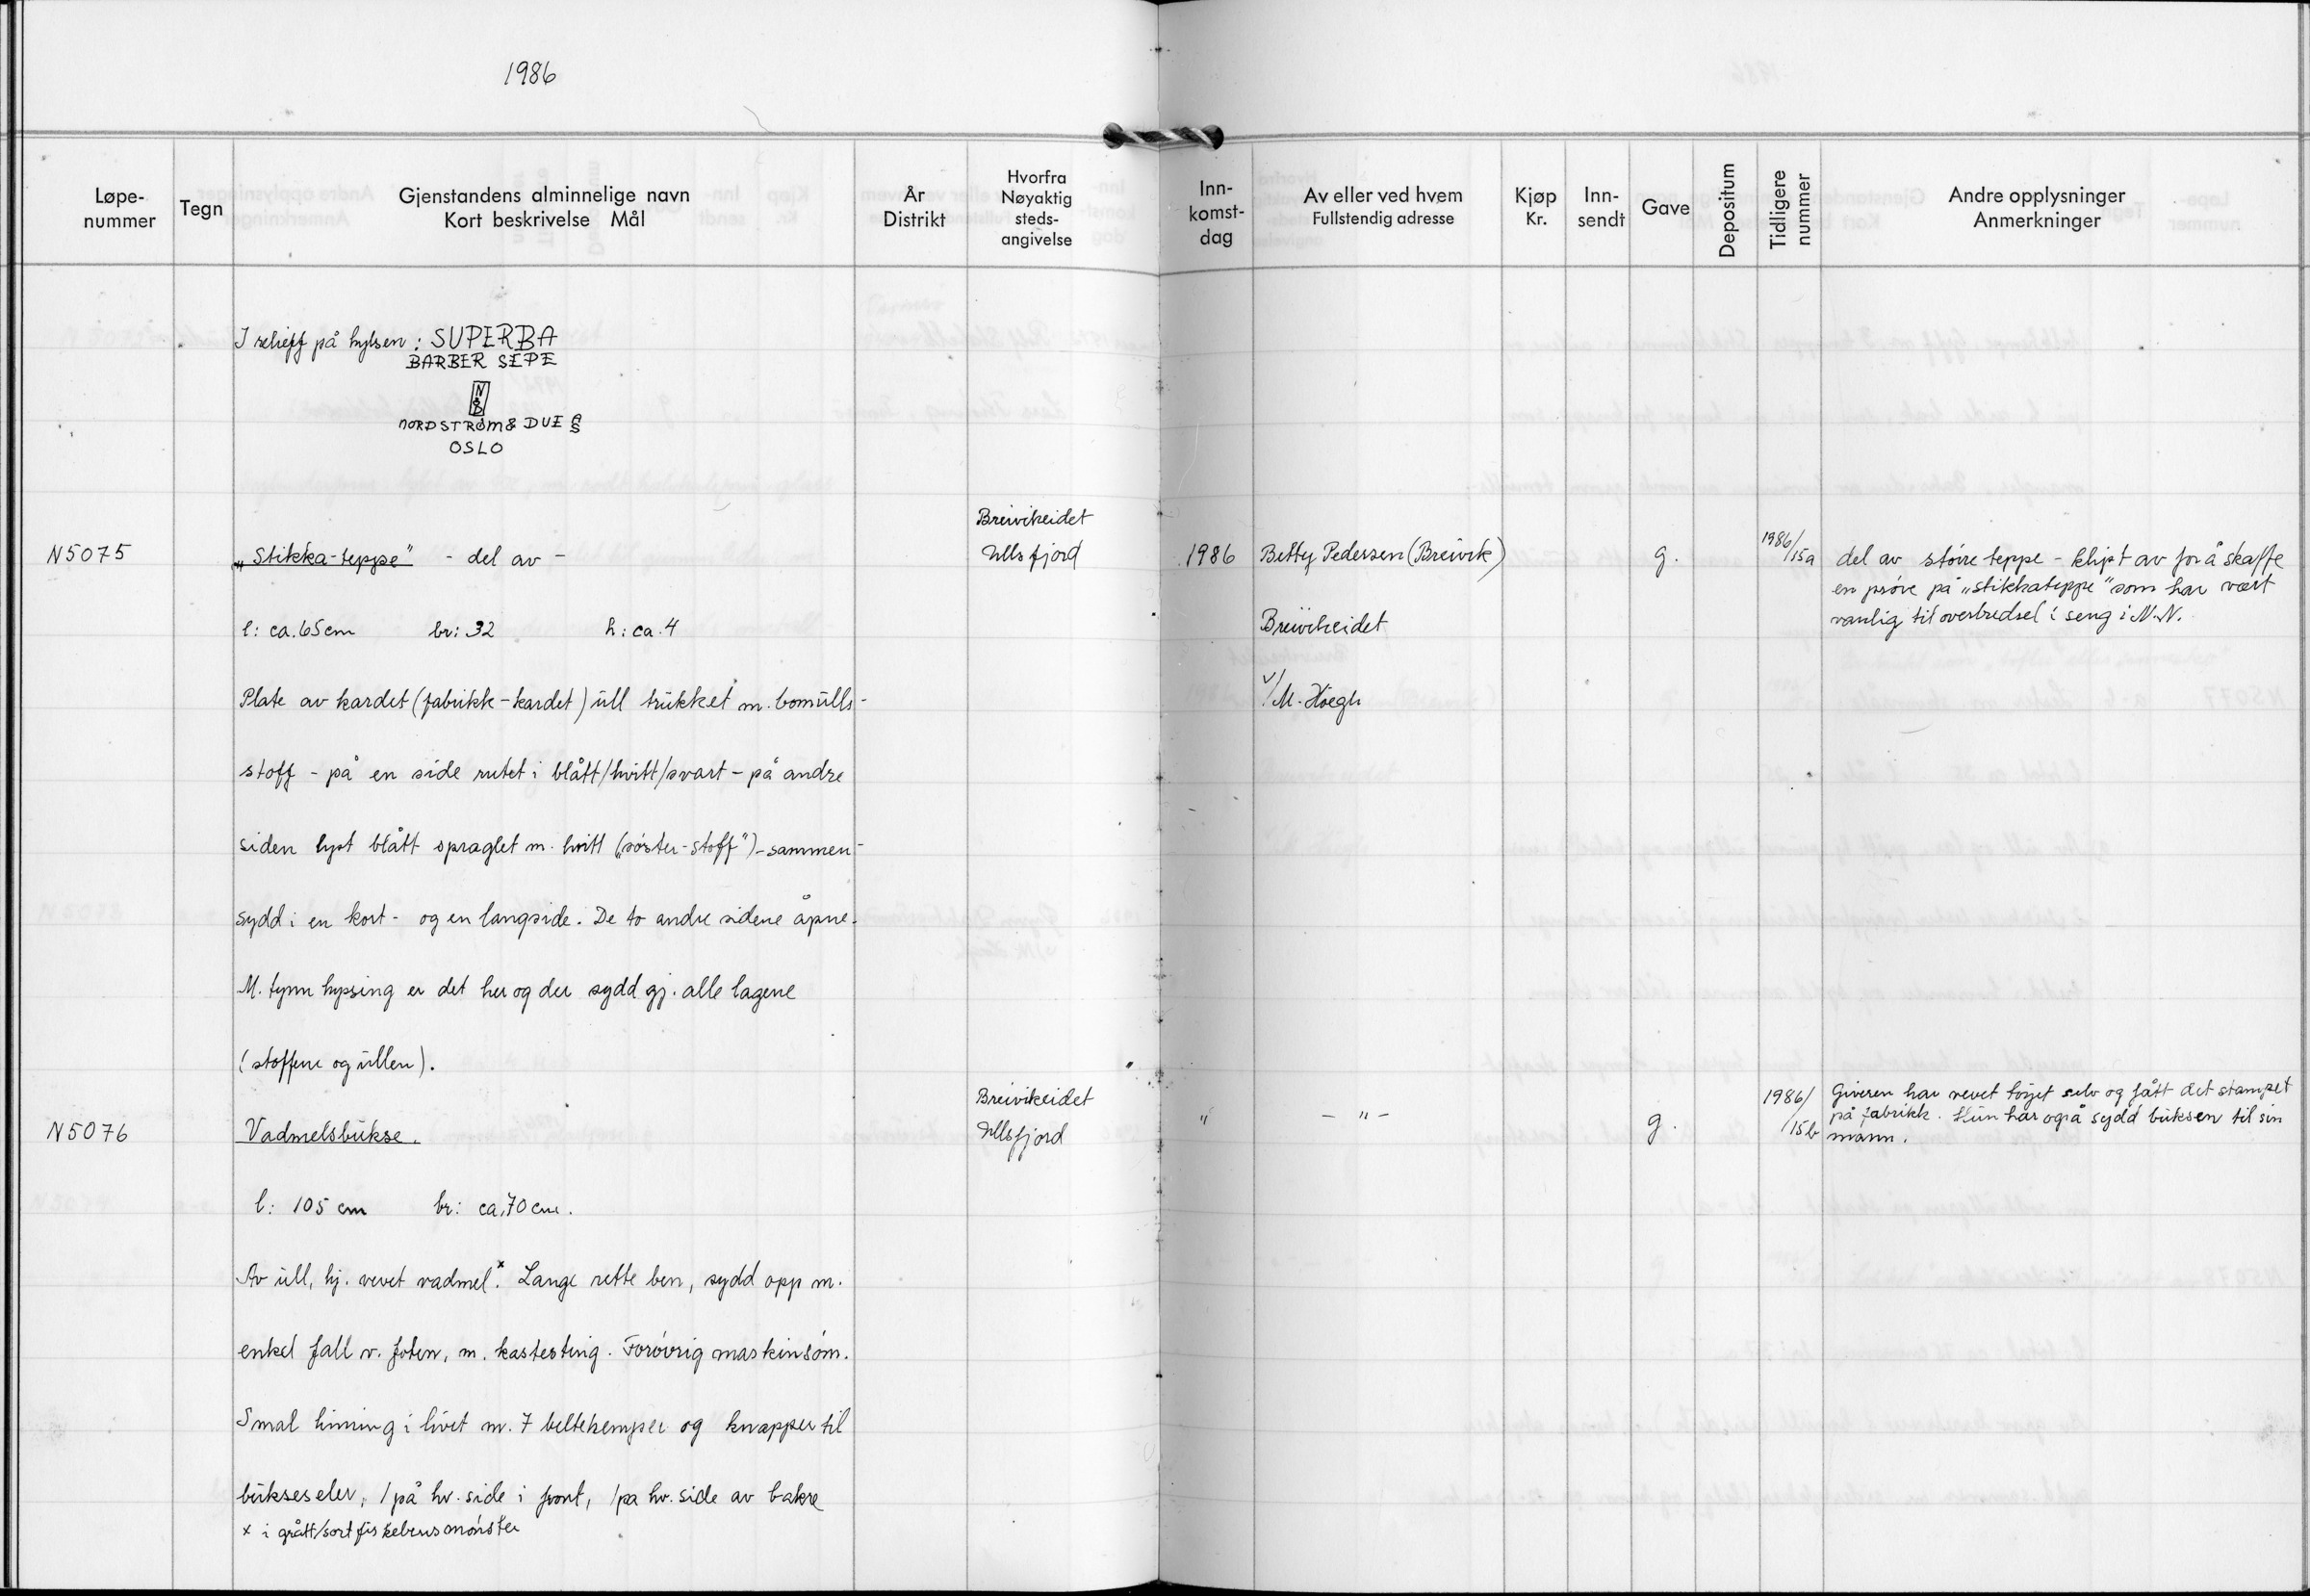 1986
Løpe-
nummer
Tegn
Gjenstandens alminnelige navn
Kort beskrivelse Mål
År
Distrikt
Hvorfra
Nøyaktig
steds-
angivelse
Inn-
komst-
dag
Av eller ved hvem
Fullstendig adresse
Kjøp
Kr.
Inn-
sendt
Gave
Depositum
Tidligere
nummer
Andre opplysninger
Anmerkninger
I relieff på hylsen: SUPERBA
BARBER SEPE
N
&
D
NORDSTRØM & DUE A/S
OSLO
N5075
„Stikka-teppe" - del av -
Breivikeidet
Ullsfjord
1986
Betty Pedersen (Breivik)
g.
1986/
15a
del av større teppe - klipt av for å skaffe
en prøve på „stikkateppe" som har vært
vanlig til overbredsel i seng i N.N.
l: ca. 65 cm br: 32 h: ca. 4
Breivikeidet
Plate av kardet (fabrikk-kardet) ull trukket m. bomulls-
v/M. Høegh
stoff - på en side rutet i blått/hvitt/svart - på andre
siden lyst blått spraglet m. hvitt („søster-stoff") - sammen-
sydd i en kort- og en langside. De to andre sidene åpne.
M. tynn hyssing er det her og der sydd gj. alle lagene
(stoffene og ullen).
N5076
Vadmelsbukse.
Breivikeidet
Ullsfjord
"
- " -
g.
1986/
/15b
Giveren har vevet tøyet selv og fått det stampet
på fabrikk. Hun har også sydd buksen til sin
mann.
l: 105 cm br: ca. 70 cm.
Av ull, hj. vevet vadmel.x Lange rette ben, sydd opp m.
enkel fall v. foten, m. kastesting. Forøvrig maskinsøm.
Smal linning i livet m. 7 beltehemper og knapper til
bukseseler, 1 på hv. side i front, 1 på hv. side av bakre
x i grått/sort fiskebensmønster